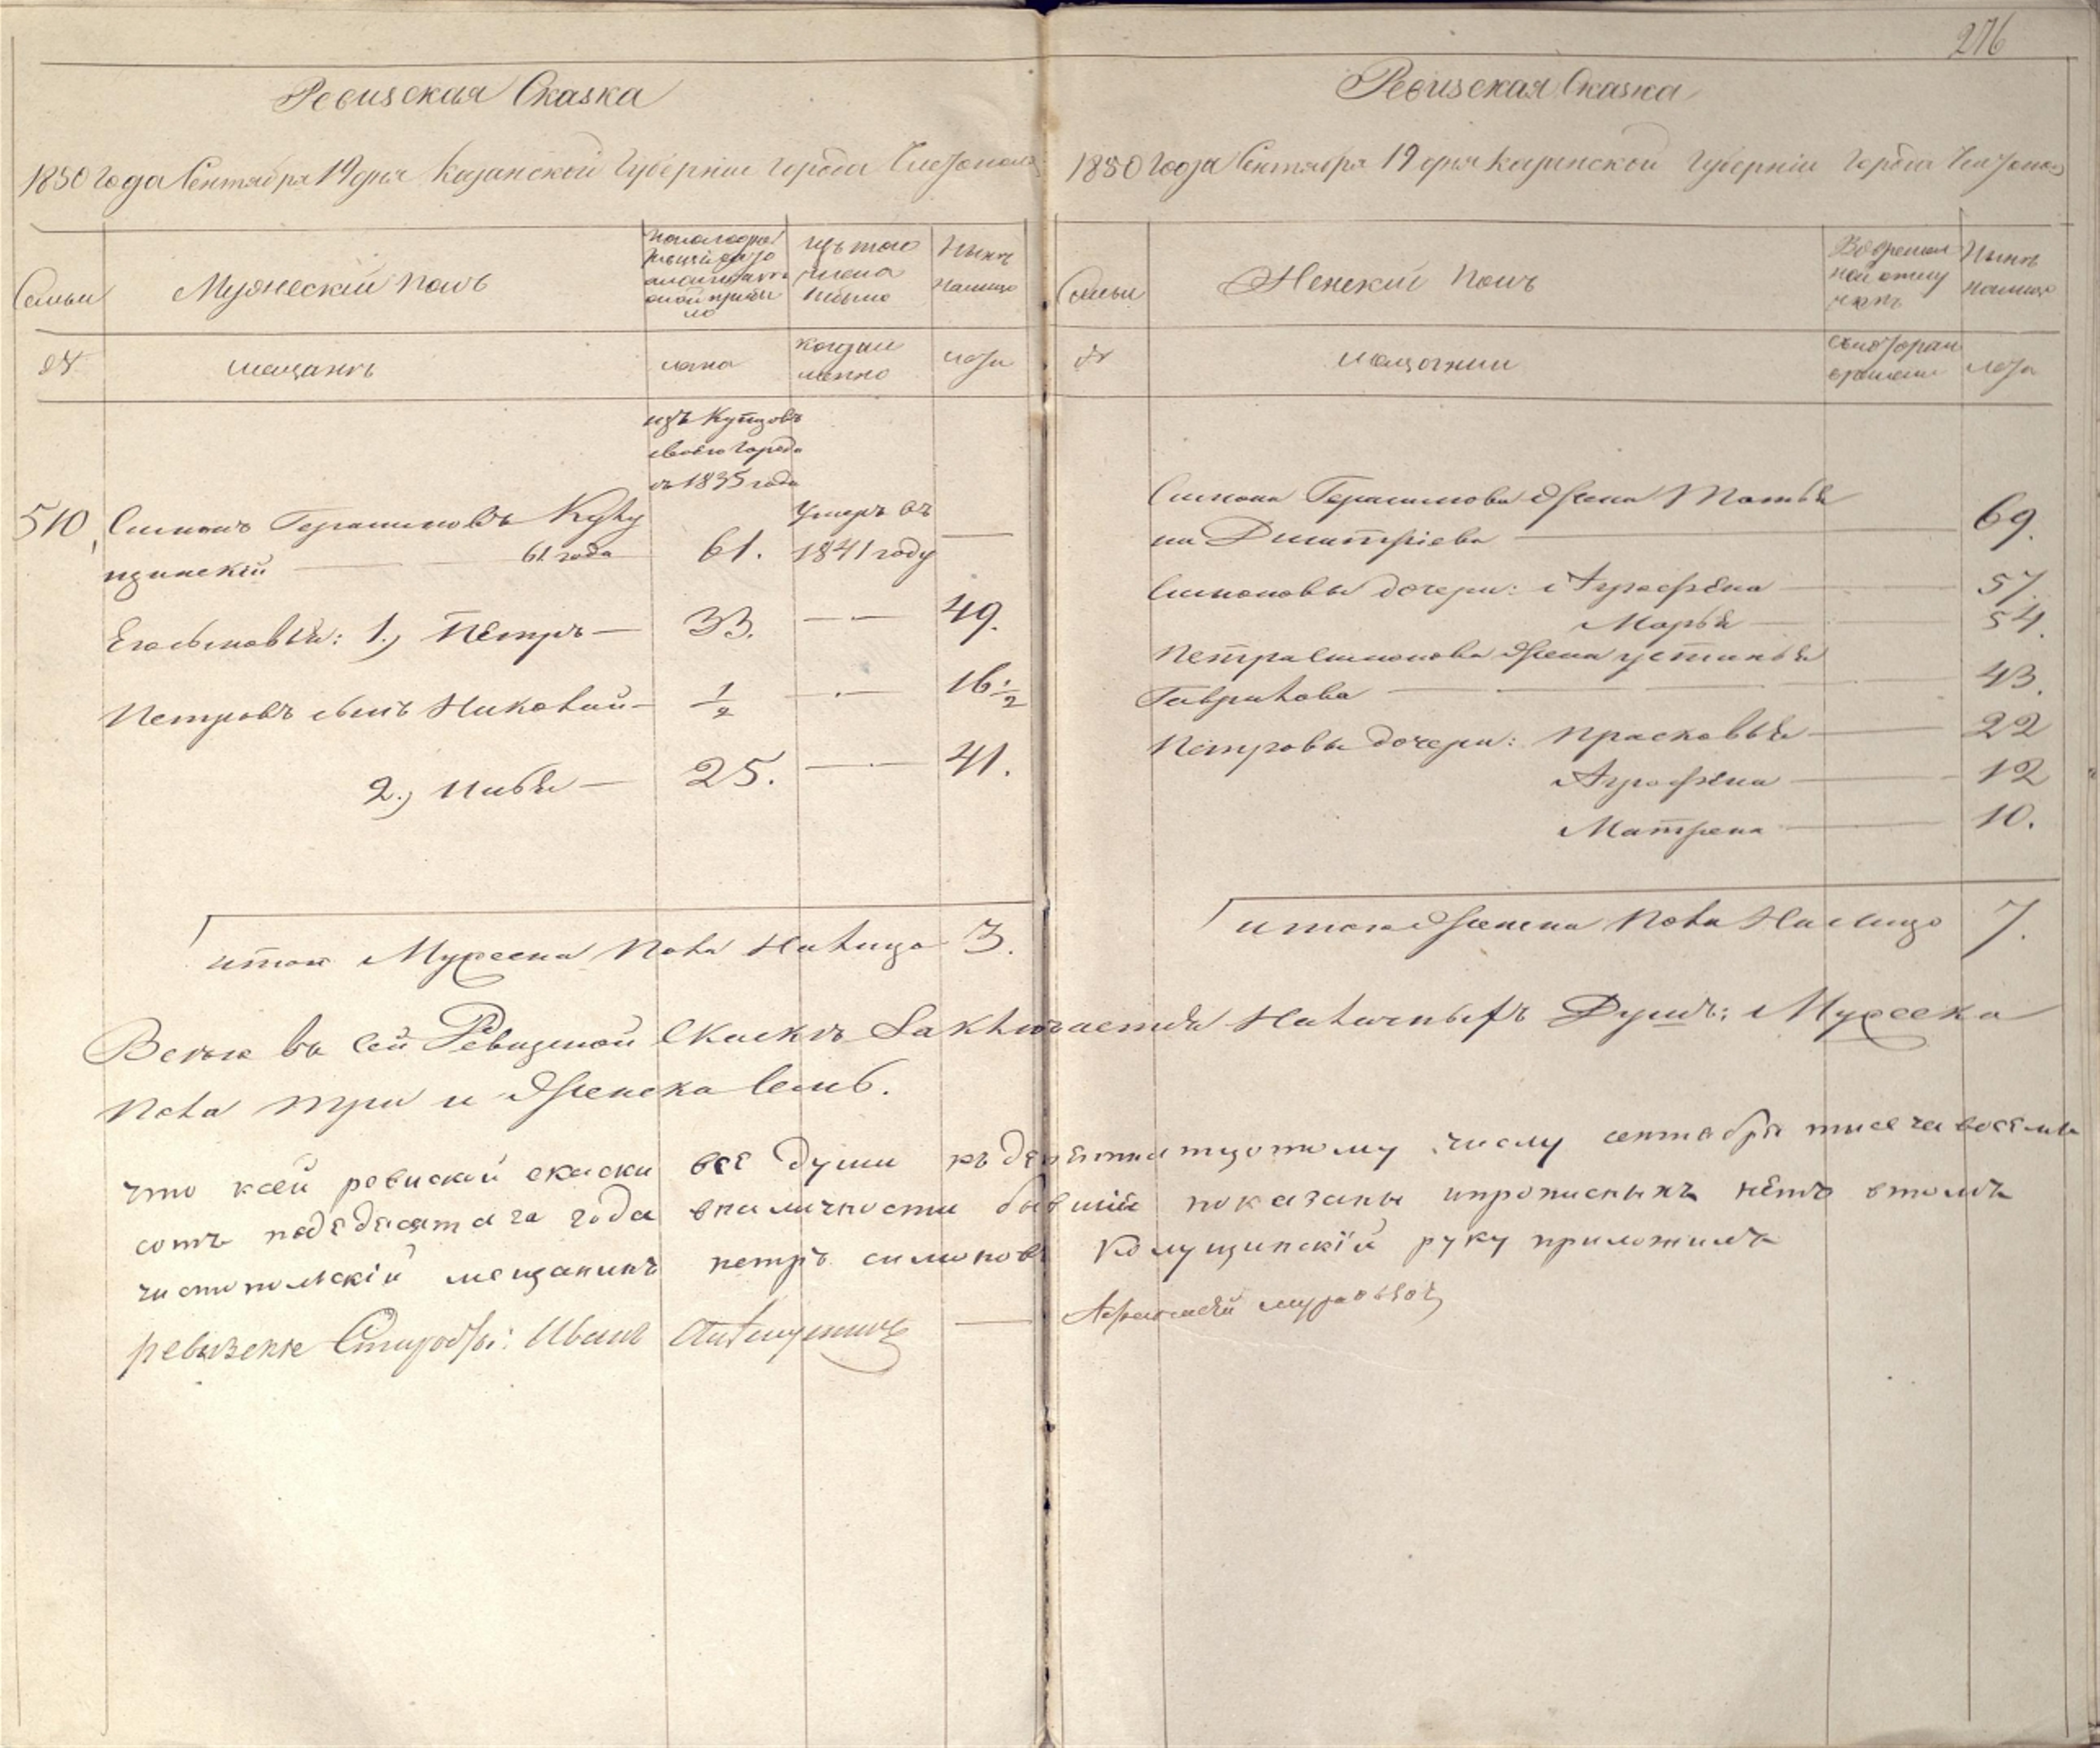 276
Ревизская Сказка
1850 года Сентября 19 дня Казанской Губерніи города Чистополя
Семьи
Мужескій полъ
изъ того
числа
выбыло
Нынѣ
налицо
№
мещанѣ
лѣта
когда именно
лѣта
изъ Купцовъ
своего города
въ 1835 года
510,
Симонъ Герасимовъ
щинскій
61 года
61.
Умеръ въ
1841 году
Его сыновья: 1., Петръ
33.
49.
Петровъ сынъ Николай
1/2
16 1/2
2.,
25.
41.
итого Мужеска Пола Налицо 3.
Ревизская Сказка
1850 года Сентября 19 дня Казанской Губерніи города Чистополя
Семьи
Женскій полъ
Во временной отлучкѣ
Нынѣ
налицо
№
мещанки
съ котораго
времени
лѣта
Симона Герасимова жена Матрё
на Дмитріева
69.
Симоновы дочери: Аграфѣна
57.
Марья
54.
Петра Симонова жена Устинья
Гаврилова
43.
Петровы дочери: Прасковья
22
Аграфѣна
12
Матрена
10.
итого Женска Пола Налицо 7.
Всего въ сей Ревизской Сказкѣ Заключается Наличныхъ Душъ: Мужеска
Пола три и Женска Семь.
что ксей ревиской скаски всѣ души къ девятнатцотому числу сентября тысеча восемь
сотъ подѣдесятаго года вналичности бывшіе показаны ипрописныхъ нѣтъ втомъ
чистопольскій мещанинъ петръ симоновъ Колущинскій руку приложилъ
ревизскіе Старосты: Иванъ